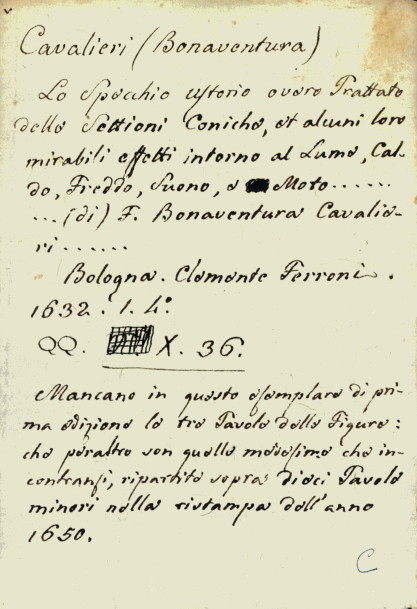 Cavalieri (Bonaventura)
Lo Specchio ustorio overo Trattato
delle Settioni Coniche, et alcuni loro
mirabili effetti intorno al Lume, Cal-
do, Freddo, Suono, e Moto......
...(di) F. Bonaventura Cavalie-
ri......
Bologna. Clemente Ferroni.
1632. 1. 4.º
QQ. X. 36.
Mancano in questo esemplare di pri-
ma edizione le tre Tavole delle Figure:
che peraltro son quelle medesime che in-
contransi, ripartite sopra dieci Tavole
minori nella ristampa dell'anno
1650.
C